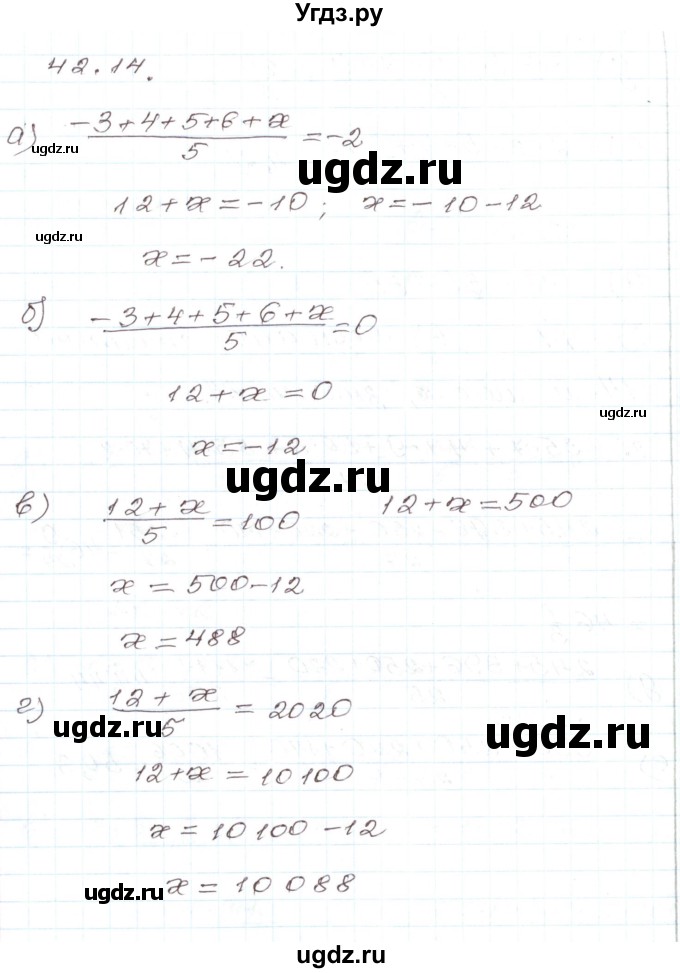 Угдз.ру
42.14.
а) (-3+4+5+6+x)/5 = -2
ugdz.ru
ugdz.ru
12+x=-10; x=-10-12
ugdz.ru
x=-22.
б) (-3+4+5+6+x)/5 = 0
12+x=0
ugdz.ru
x=-12
ugdz.ru
в) (12+x)/5 = 100 12+x=500
x=500-12
x=488
г) (12+x)/5 = 2020
ugdz.ru
ugdz.ru
12+x=10100
x=10100-12
x=10088
ugdz.ru
ugdz.ru